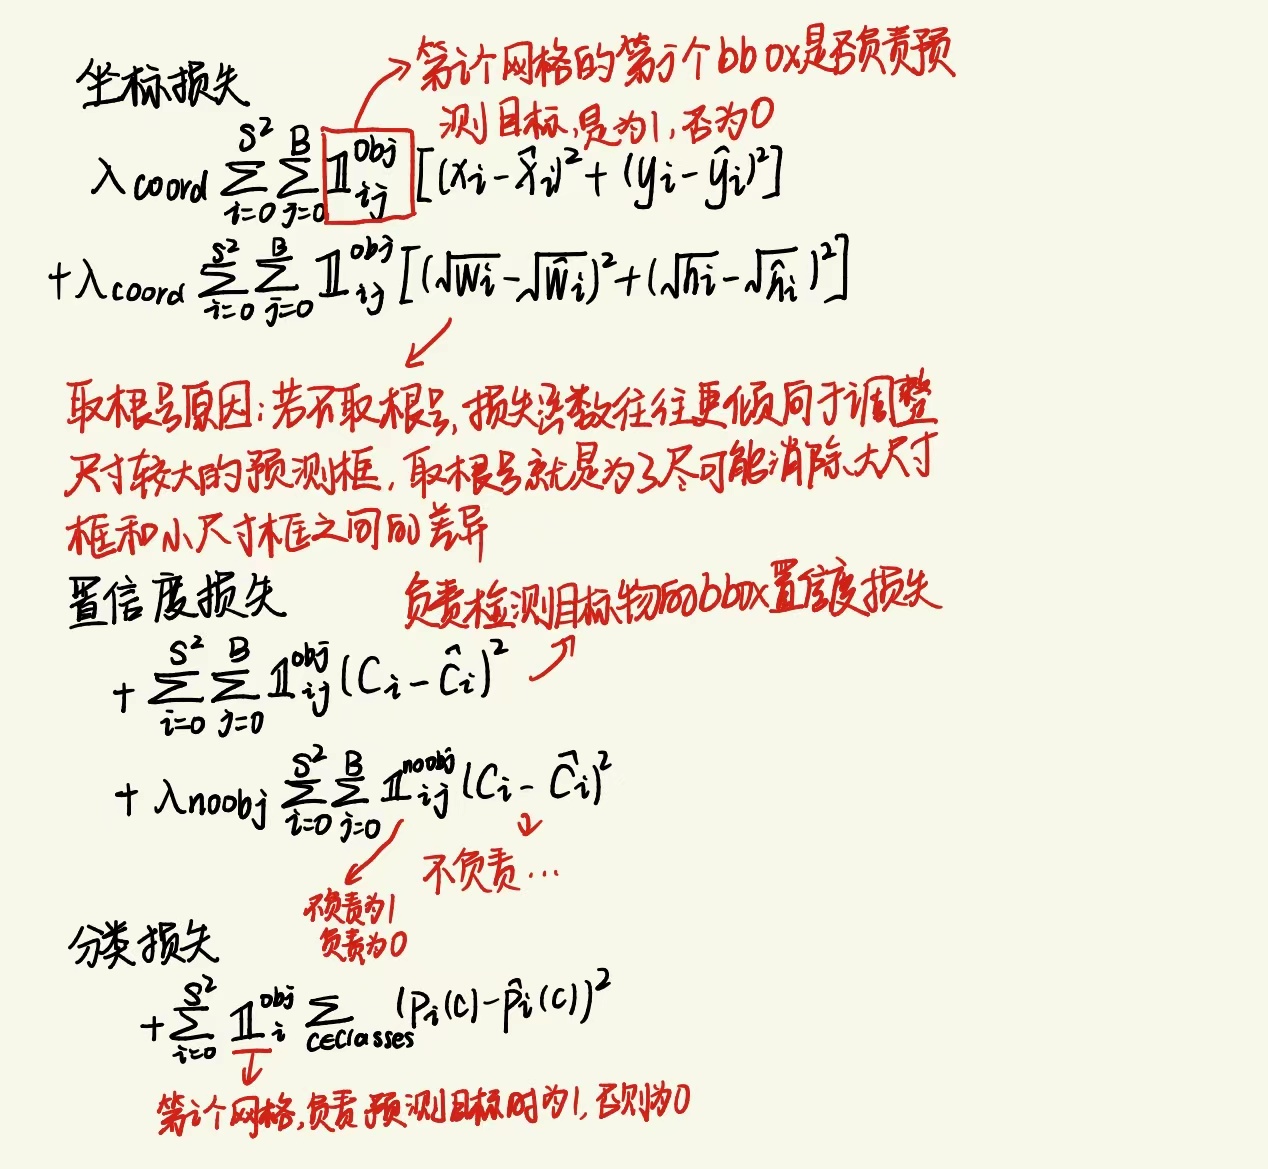 坐标损失
第i个网格的第j个bbox是否负责预
测目标,是为1,否为0
λcoord ∑_{i=0}^{S²} ∑_{j=0}^{B} 𝟙_{ij}^{obj} [(xi-x̂i)²+(yi-ŷi)²]
+λcoord ∑_{i=0}^{S²} ∑_{j=0}^{B} 𝟙_{ij}^{obj} [(√wi-√ŵi)²+(√hi-√ĥi)²]
取根号原因:若不取根号,损失函数往往更倾向于调整
尺寸较大的预测框,取根号就是为了尽可能消除大尺寸
框和小尺寸框之间的差异
置信度损失
负责检测目标物的bbox置信度损失
+ ∑_{i=0}^{S²} ∑_{j=0}^{B} 𝟙_{ij}^{obj} (Ci-Ĉi)²
+ λnoobj ∑_{i=0}^{S²} ∑_{j=0}^{B} 𝟙_{ij}^{noobj} (Ci-Ĉi)²
不负责…
不负责为1
负责为0
分类损失
+∑_{i=0}^{S²} 𝟙_{i}^{obj} ∑_{c∈classes} (pi(c)-p̂i(c))²
第i个网格,负责预测目标时为1,否则为0